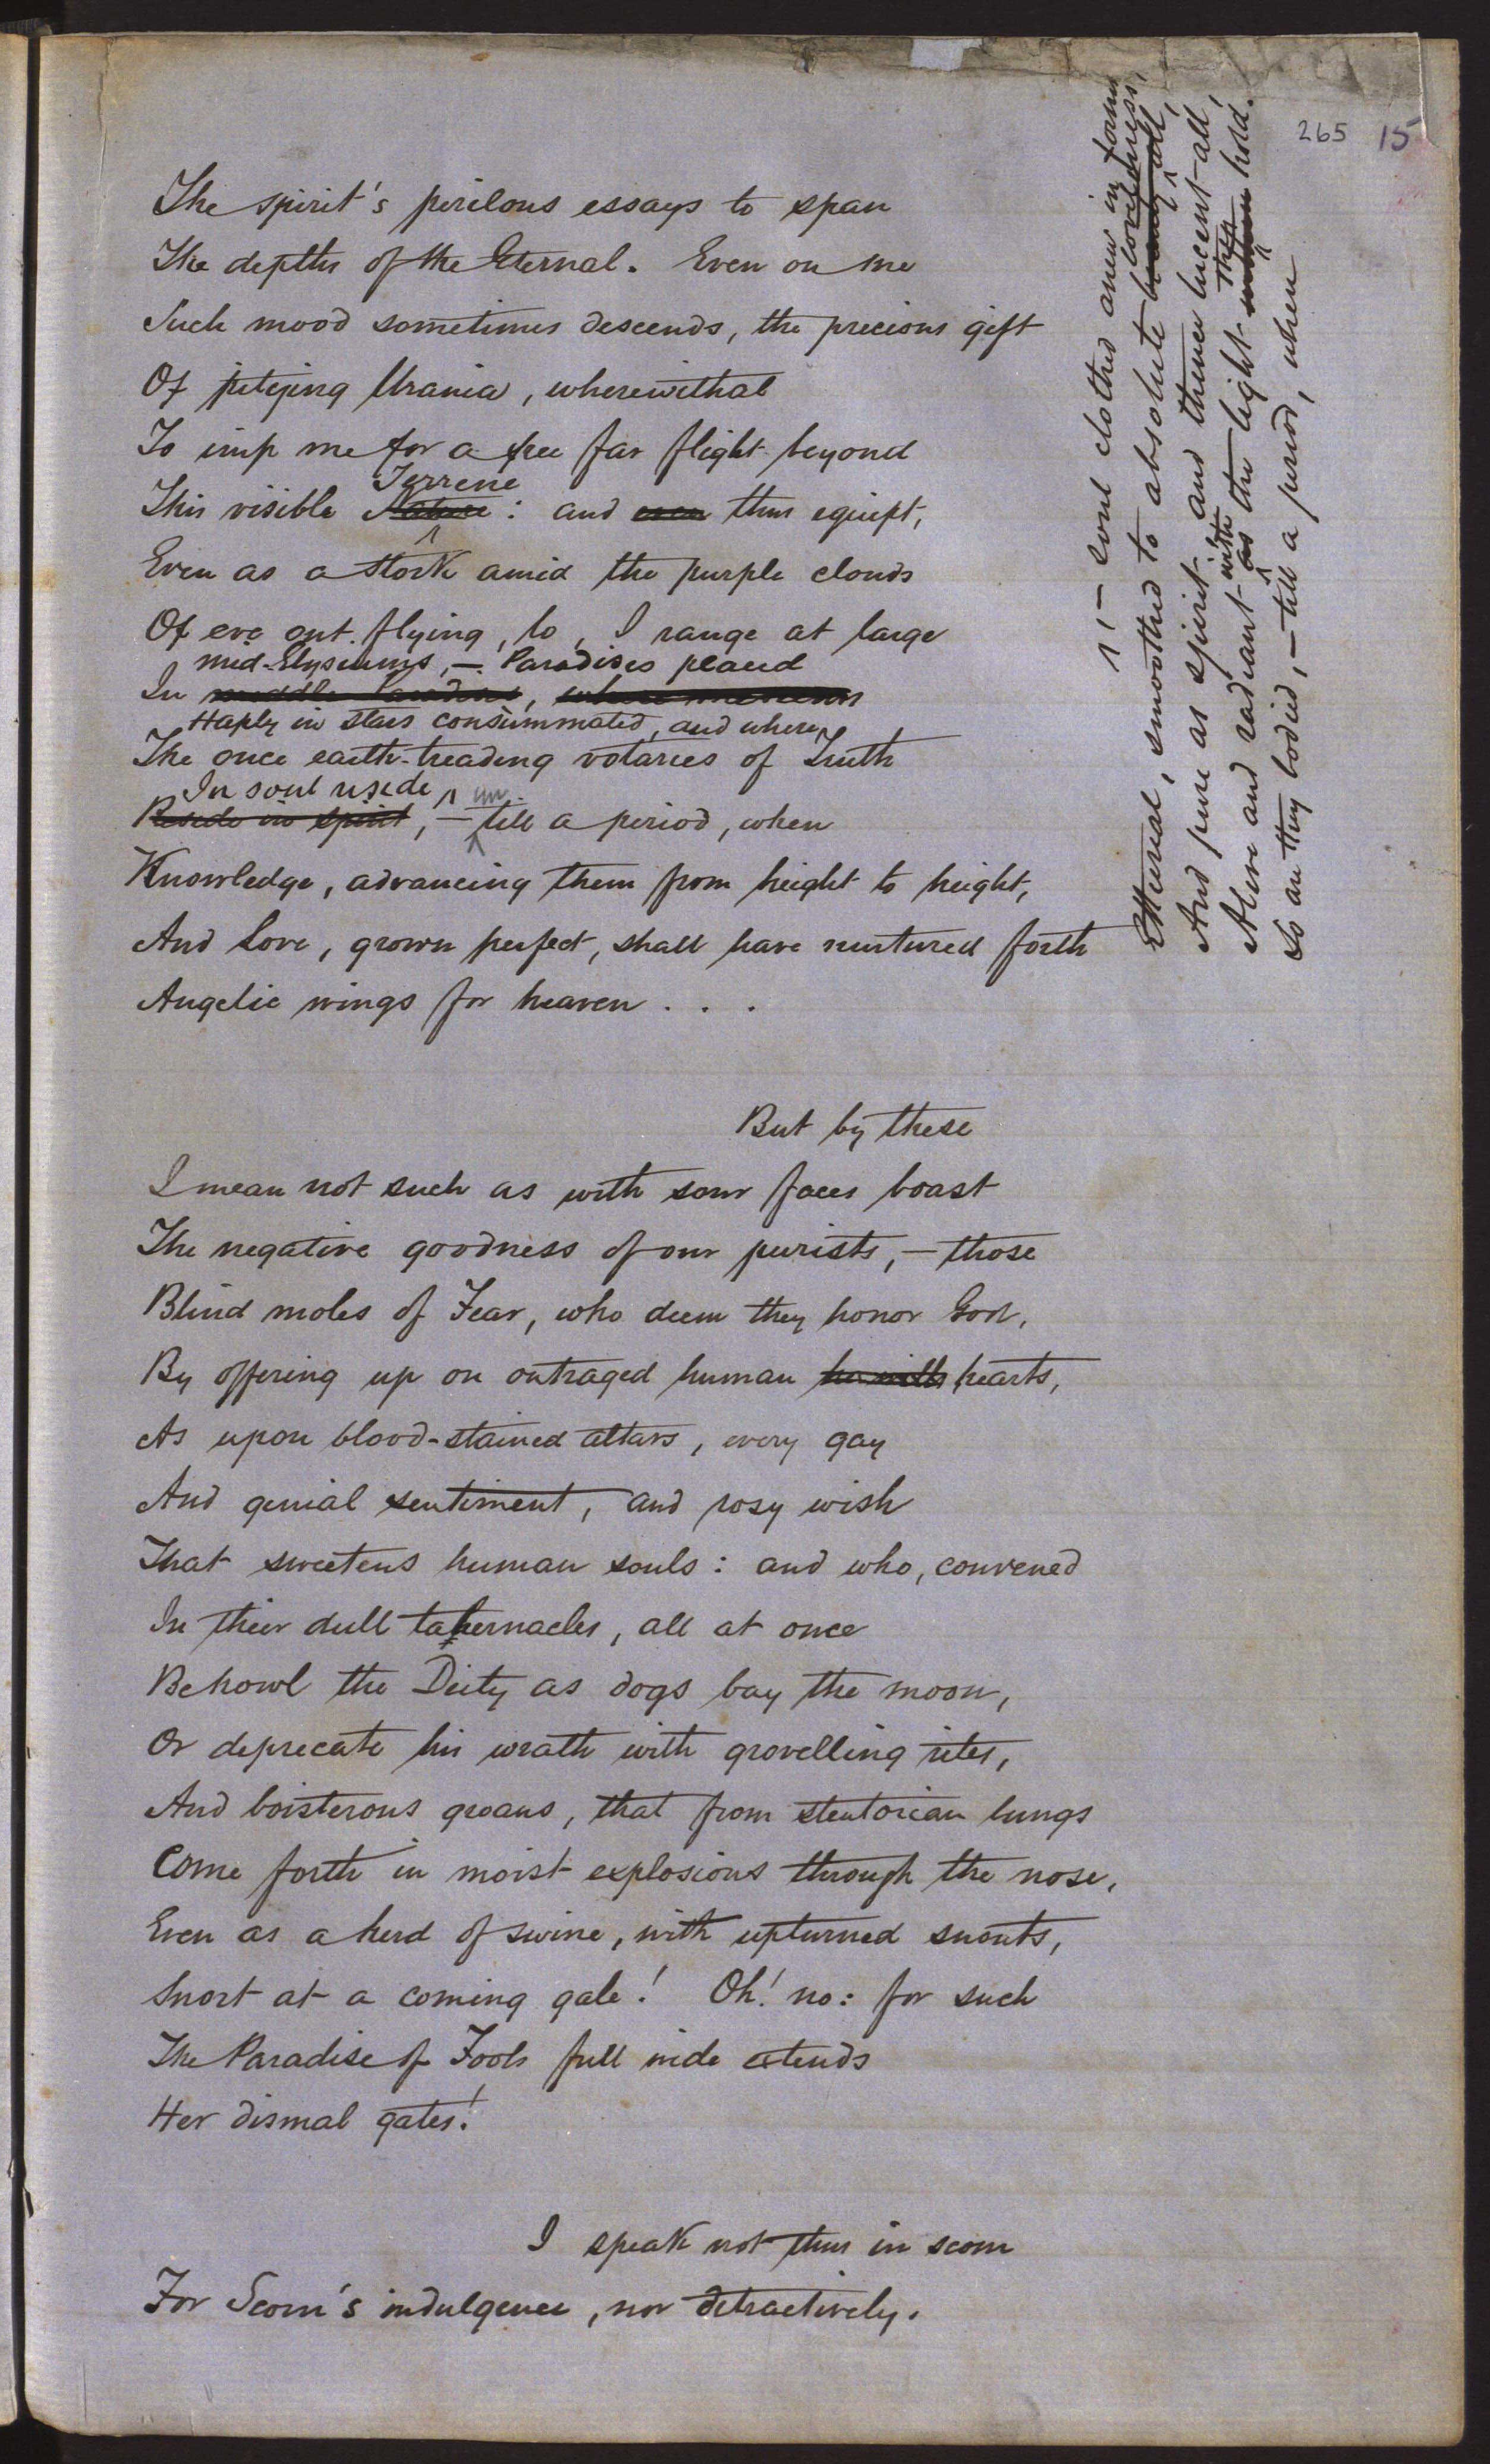 265 15
The spirit's perilous essays to span
The depths of the Eternal. Even on me
Such mood sometimes descends, the precious gift
Of pitying Urania, wherewithal
To imp me for a free far flight beyond
Terrene
This visible Nature : and even thus equipt,
Even as a stork amid the purple clouds
Of eve out flying, lo, I range at large
mid-Elysiums, — Paradises placed
In middle
Haply in stars consummated, and where
The once earth-treading votaries of Truth
In soul reside un
Reside in spirit, — till a period, when
Knowledge, advancing them from height to height,
And Love, grown perfect, shall have nurtured forth
Angelic wings for heaven . . .
But by these
I mean not such as with sour faces boast
The negative goodness of our purists, — those
Blind moles of Fear, who deem they honor God,
By offering up on outraged human hearts,
As upon blood-stained altars, every gay
And genial sentiment, and rosy wish
That sweetens human souls : and who, convened
In their dull tabernacles, all at once
Behowl the Deity as dogs bay the moon,
Or deprecate his wrath with grovelling rites,
And boisterous groans, that from stentorian lungs
Come forth in moist explosions through the nose,
Even as a herd of swine, with upturned snouts,
Snort at a coming gale! Oh! no: for such
The Paradise of Fools full wide extends
Her dismal gates!
I speak not thus in scorn
For Scorn's indulgence, nor detractively.
— soul clothed anew in forms
loveliness,
Ethereal, smoothed to absolute beauty all,
And pure as spirit and thence lucent all,
with they
Alive and radiant as the light hold.
So are they bodied, — till a period, when